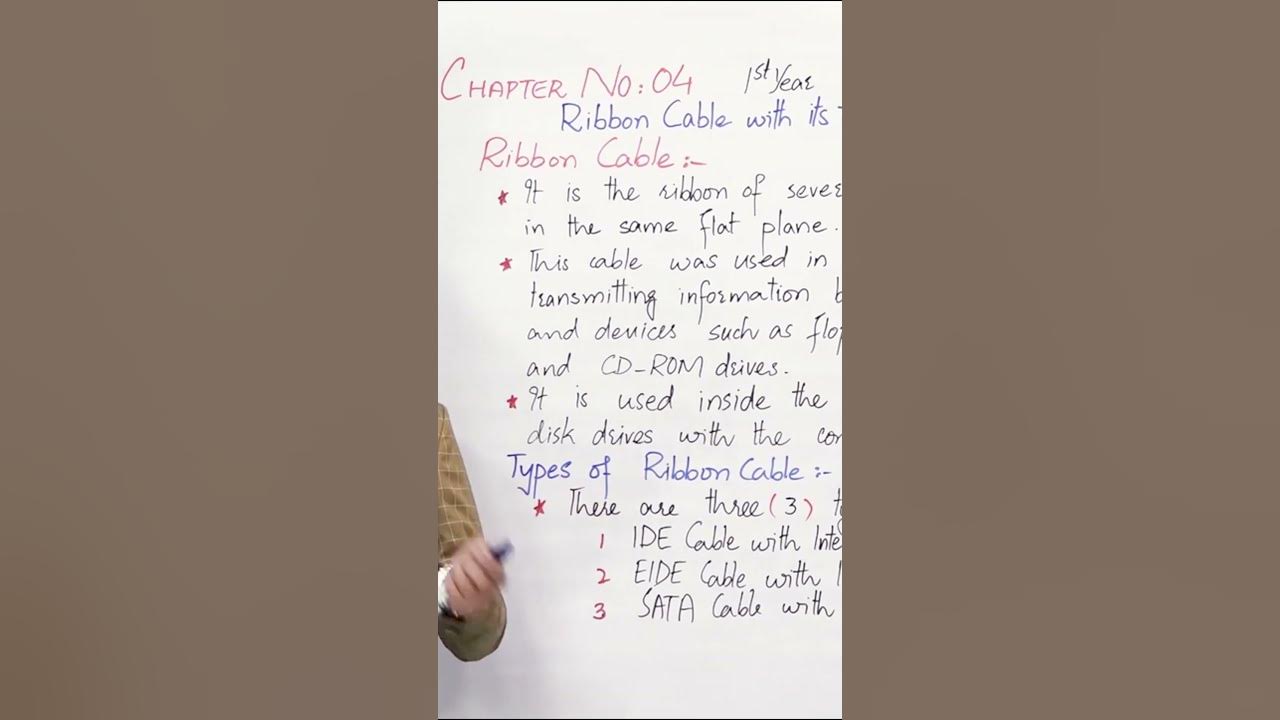 CHAPTER NO: 04 1st Year
Ribbon Cable with its
Ribbon Cable:-
* It is the ribbon of sever
in the same flat plane.
* This cable was used in
transmitting information b
and devices such as flop
and CD-ROM drives.
* It is used inside the
disk drives with the con
Types of Ribbon Cable:-
* There are three (3) ty
1 IDE Cable with Inte
2 EIDE Cable with I
3 SATA Cable with